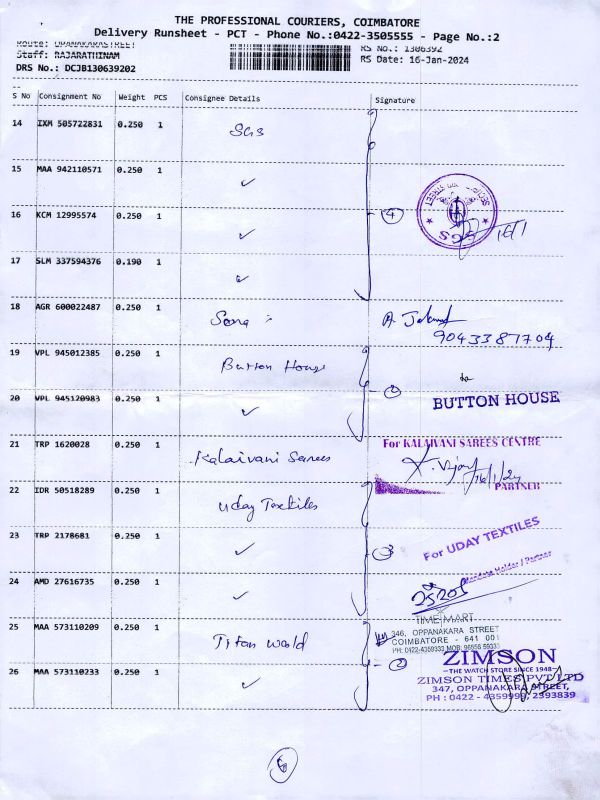 THE PROFESSIONAL COURIERS, COIMBATORE
Delivery Runsheet - PCT - Phone No.:0422-3505555 - Page No.:2
Route: OPANAKARASTREET RS No.: 1306392
Staff: RAJARATHINAM RS Date: 16-Jan-2024
DRS No.: DCJB130639202
S No Consignment No Weight PCS Consignee Details Signature
14 IXM 505722831 0.250 1 SGS
15 MAA 942110571 0.250 1 ✓
16 KCM 12995574 0.250 1 ✓ 4
SGS
17 SLM 337594376 0.190 1 ✓
18 AGR 600022487 0.250 1 Sona
9043387704
19 VPL 945012385 0.250 1 Button House
20 VPL 945120983 0.250 1 ✓ BUTTON HOUSE
21 TRP 1620028 0.250 1 Kalaivani Sarees For KALAIVANI SAREES CENTRE
16/1/24
PARTNER
22 IDR 50518289 0.250 1 Uday Textiles
23 TRP 2178681 0.250 1 ✓ 3 For UDAY TEXTILES
Holder / Partner
24 AMD 27616735 0.250 1 ✓
TIME MART
25 MAA 573110209 0.250 1 Titan World 346, OPPANAKARA STREET
COIMBATORE - 641 001
PH: 0422-4359333 MOB:
2 ZIMSON
—THE WATCH STORE SINCE 1948—
26 MAA 573110233 0.250 1 ✓ ZIMSON TIMES PVT LTD
347, OPPANAKARA STREET,
PH : 0422 - 4359999, 2393839